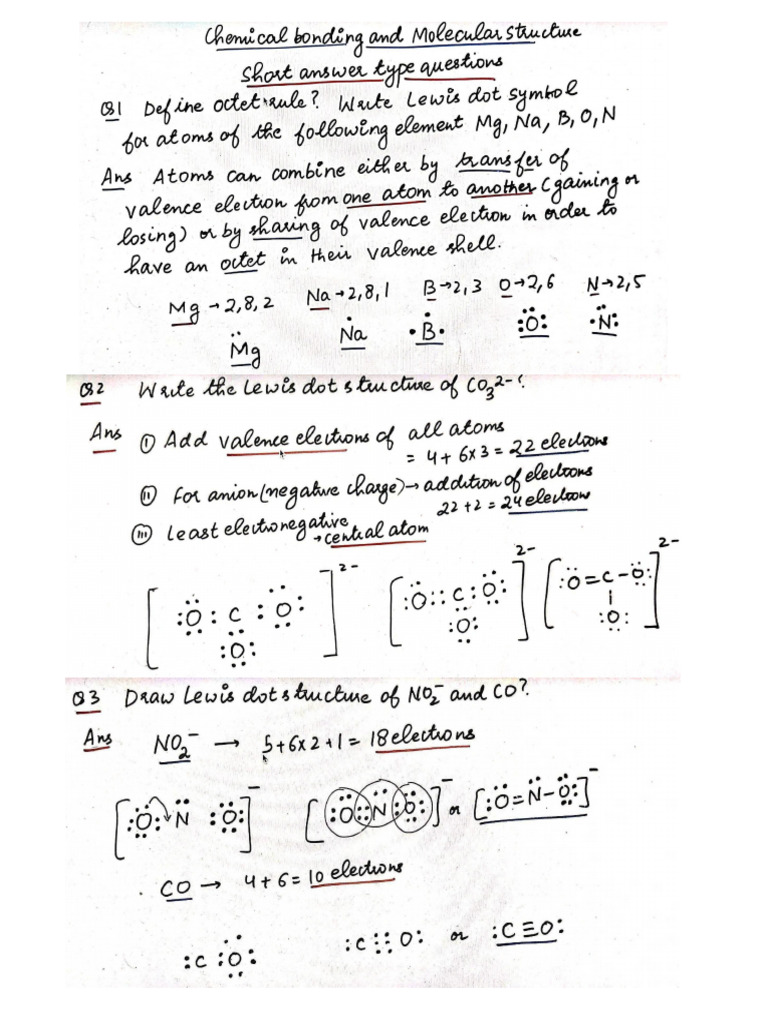 Chemical bonding and Molecular structure
Short answer type questions
Q1 Define octet rule? Write Lewis dot symbol
for atoms of the following element Mg, Na, B, O, N
Ans Atoms can combine either by transfer of
valence election from one atom to another (gaining or
losing) or by sharing of valence election in order to
have an octet in their valence shell.
Mg → 2,8,2 Na → 2,8,1 B → 2,3 O → 2,6 N → 2,5
Mg Na •B• :O: •N:
Q2 Write the Lewis dot structure of CO₃²⁻?
Ans (i) Add valence elections of all atoms
= 4 + 6×3 = 22 elections
(ii) For anion (negative charge) → addition of electrons
22+2 = 24 election
(iii) Least electronegative
→ central atom
[:O: C :O: :O:]²⁻ [:O:: C :O: :O:]²⁻ [:O=C-O: | :O:]²⁻
Q3 Draw Lewis dot structure of NO₂⁻ and CO?
Ans NO₂⁻ → 5+6×2+1 = 18 elections
[:O: N :O:]⁻ [:O::N:O:]⁻ or [:O=N-O:]⁻
CO → 4+6 = 10 elections
:C :O: :C⋮⋮O: or :C≡O: